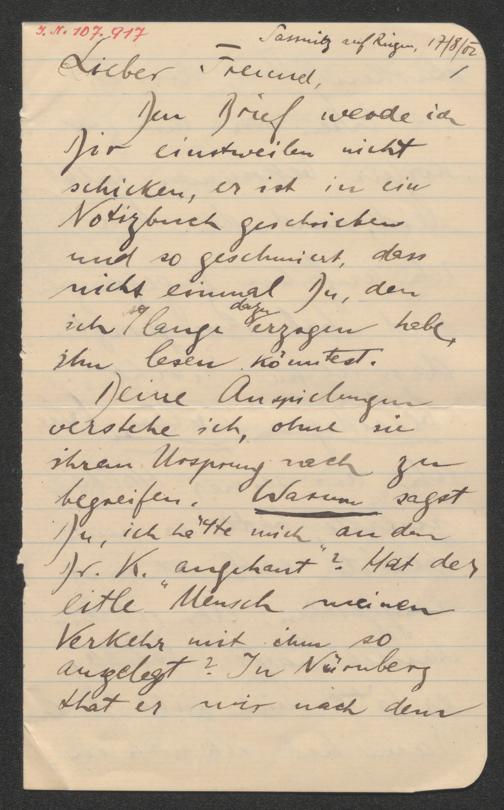 J. N. 107.917
Sassnitz auf Rügen, 17/8/02
Lieber Freund,
Den Brief werde ich
Dir einstweilen nicht
schicken, er ist in ein
Notizbuch geschrieben
und so geschmiert, dass
nicht einmal Du, den
ich so lange dazu erzogen habe,
ihn lesen könntest.
Deine Anspielungen
verstehe ich, ohne sie
ihrem Ursprung nach zu
begreifen. Warum sagst
Du, ich hätte mich an den
Dr. K. „angehaut"? Hat der
eitle Mensch meinen
Verkehr mit ihm so
ausgelegt? In Nürnberg
that er mir nach dem